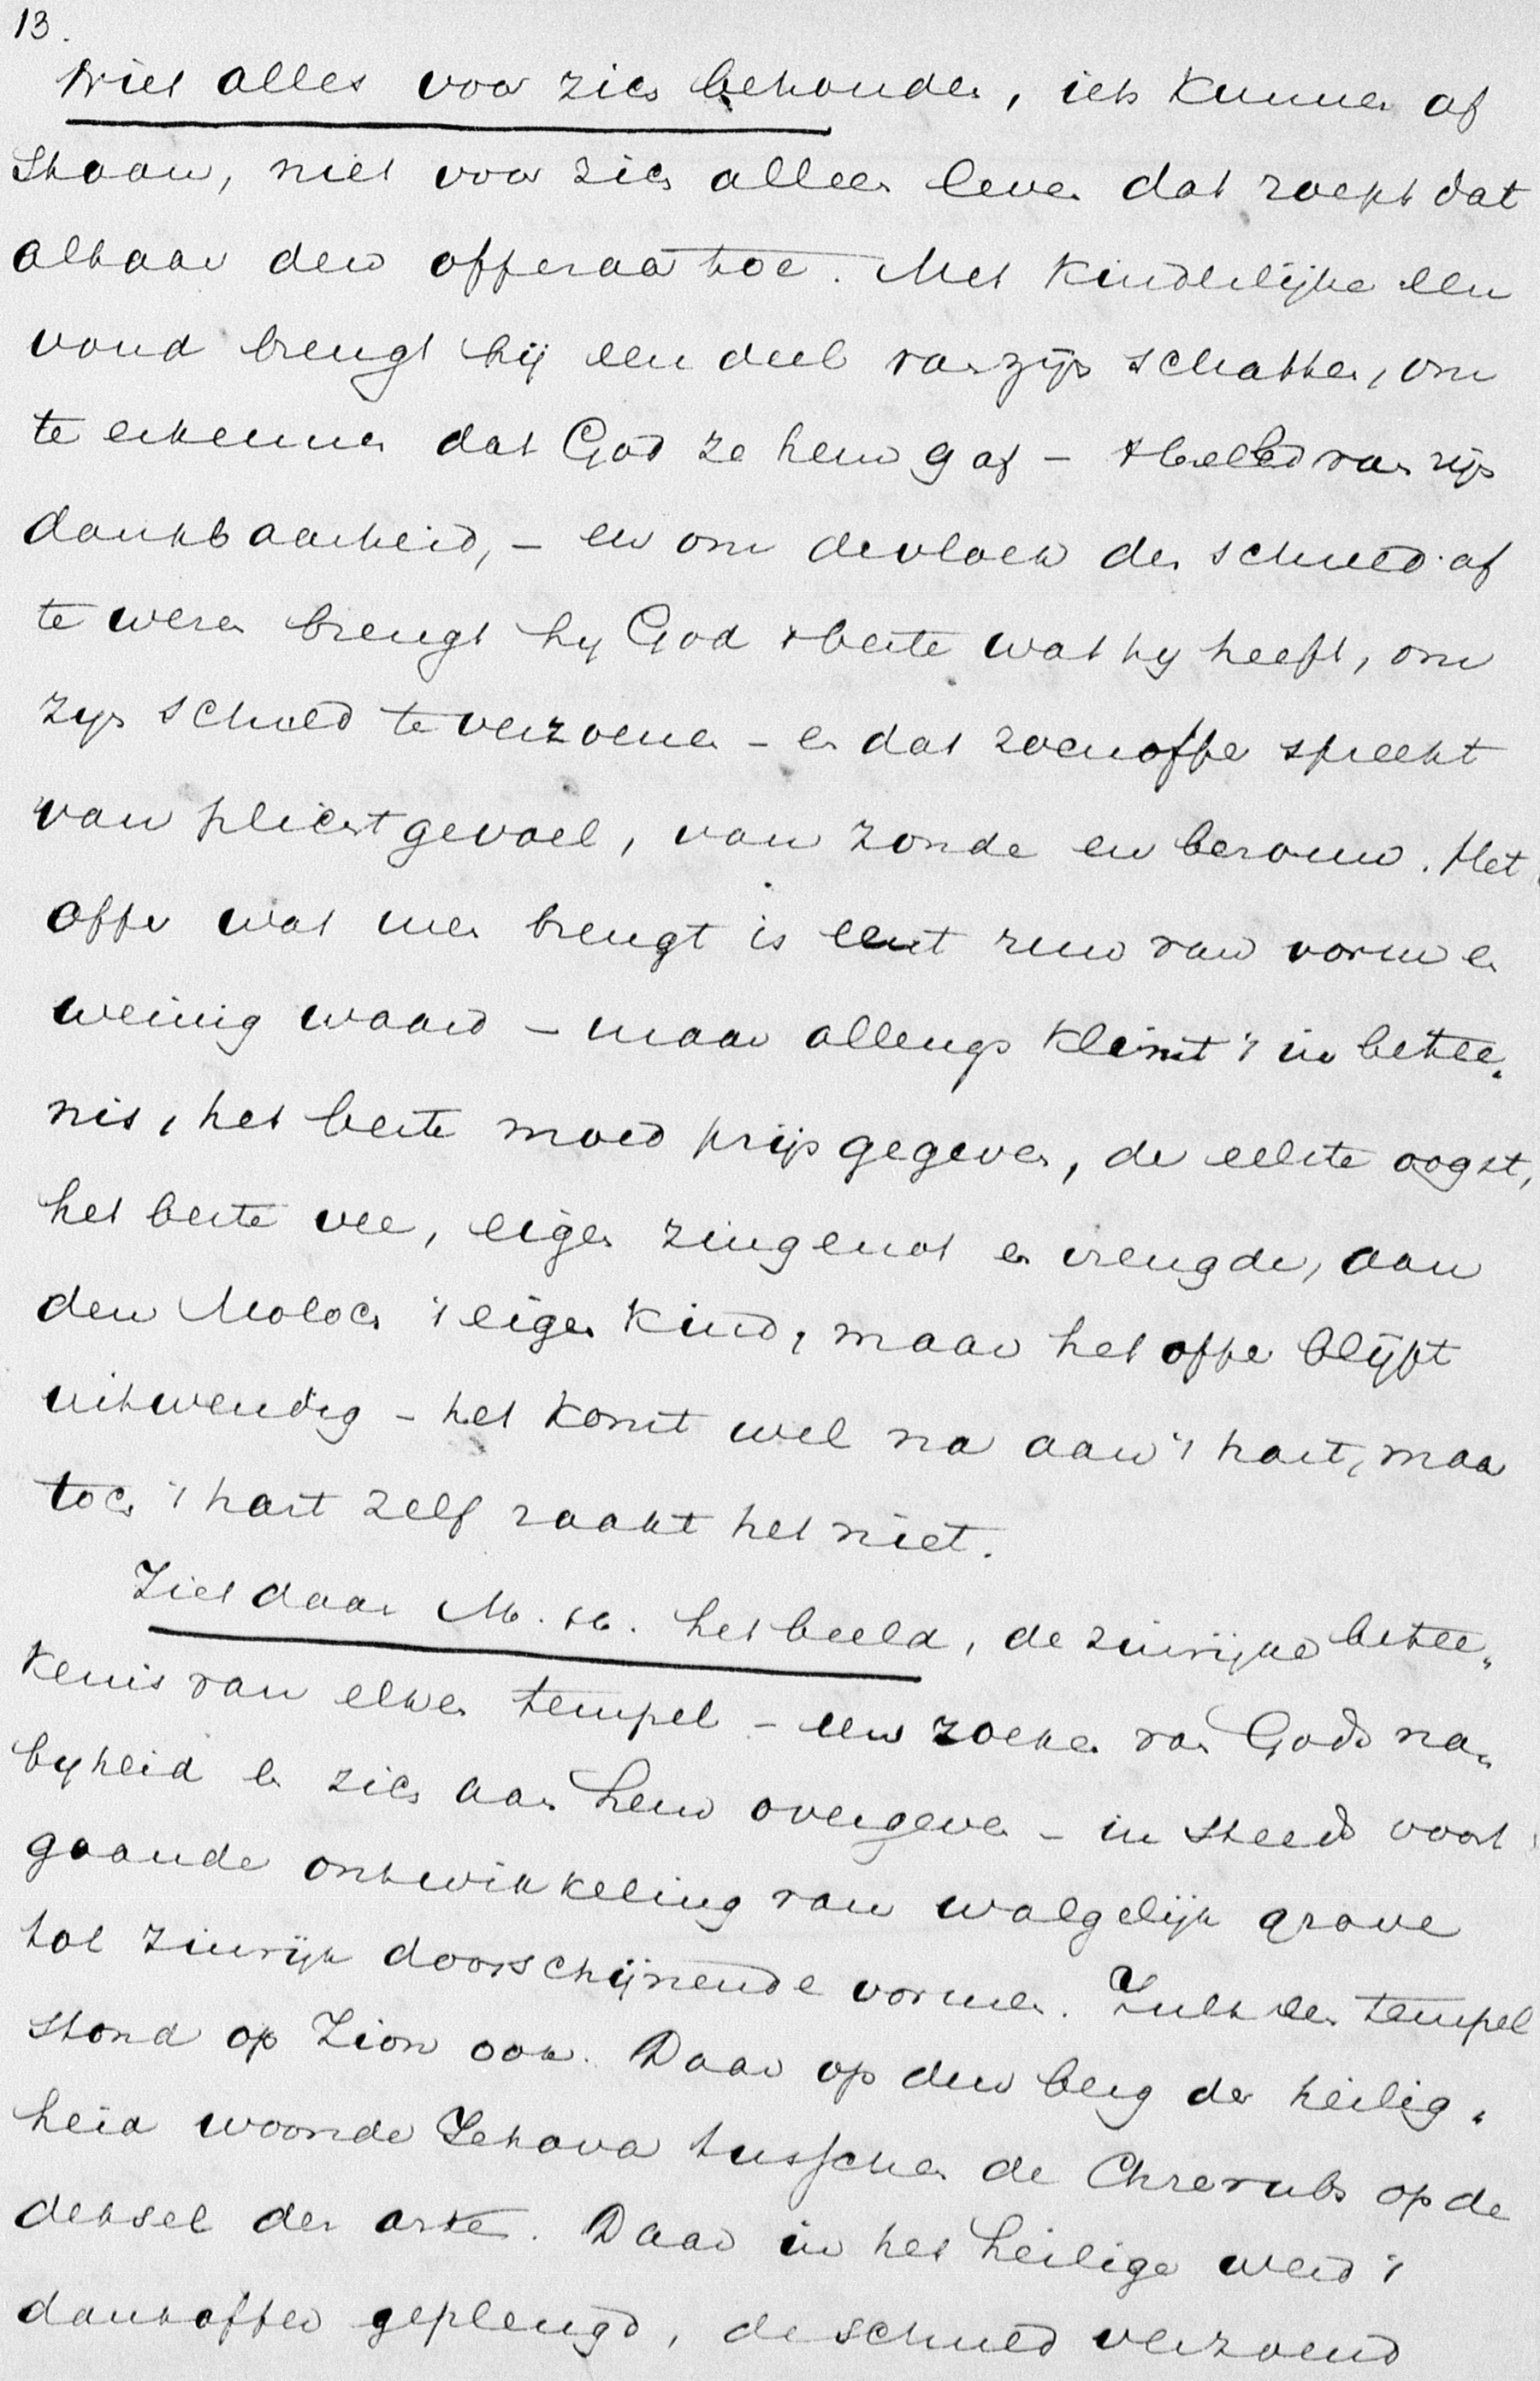 13.
Niet alles voor zich behouden, iets kunnen af
staan, niet voor zich alleen leven dat roept dat
altaar den offeraar toe. Met kinderlijke een
voud brengt hij een deel van zijn schatten, om
te erkennen dat God ze hem gaf - 't beeld van zijn
dankbaarheid, - en om de vloek der schuld af
te weren brengt hij God 't beste wat hij heeft, om
zijn schuld te verzoenen - en dat zoenoffer spreekt
van plichtgevoel, van zonde en berouw. Het
offer wat men brengt is eerst ruw van vorm en
weinig waard - maar allengs klimt 't in betee„
nis, het beste moed prijs gegeven, de eelste oogst,
het beste vee, eigen zingenot en vreugde, aan
den Moloch 't eigen kind, maar het offer blijft
uitwendig - het komt wel na aan 't hart, maar
toch 't hart zelf raakt het niet.
Ziet daar M. H. het beeld, de zinrijke betee„
kenis van elken tempel - een zoeken van Gods na„
bijheid en zich aan hem overgeven - in steeds voort
gaande ontwikkeling van walgelijk grove
tot zinrijk doorschijnende vormen. Zulk een tempel
stond op Zion ook. Daar op den berg der heilig„
heid woonde Jehova tusschen de Chrerubs op de
deksel der arke. Daar in het heilige werd 't
dankoffer geplengd, de schuld verzoend